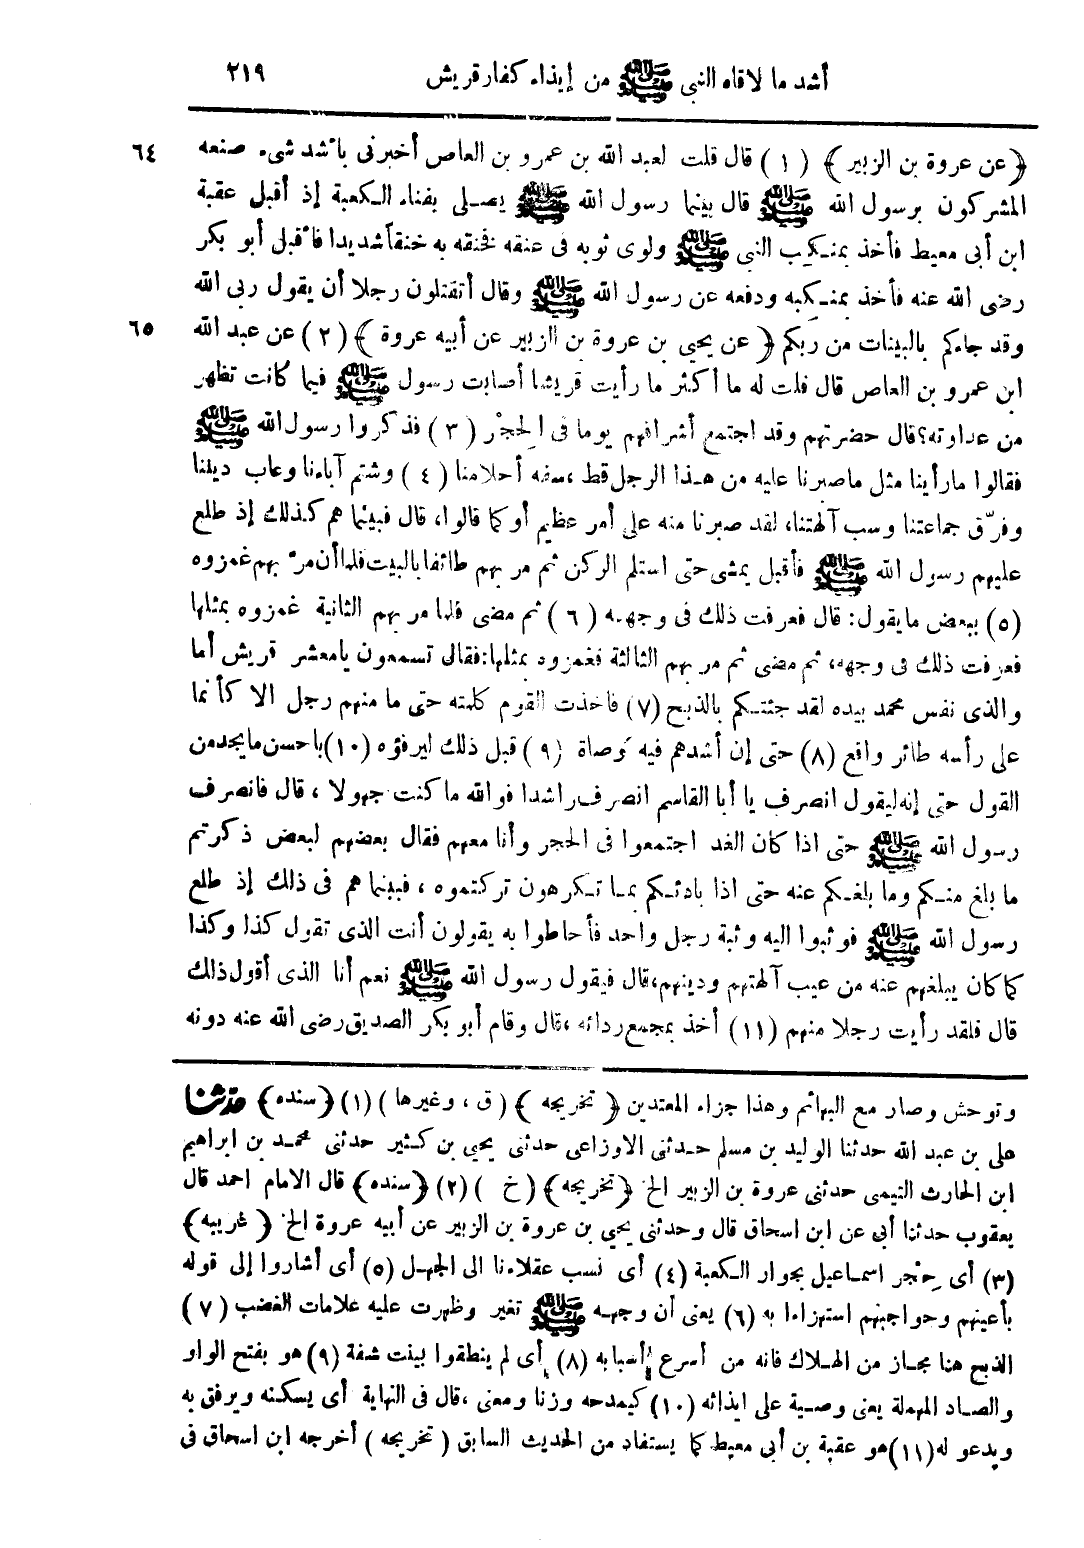 أشد ما لاقاه النبي ﷺ من إيذاء كفار قريش ٢١٩
﴿عن عروة بن الزبير﴾ (١) قال قلت لعبد الله بن عمرو بن العاص أخبرنى بأشد شىء صنعه ٦٤
المشركون برسول الله ﷺ قال بينما رسول الله ﷺ يصلى بفناء الكعبة إذ أقبل عقبة
ابن أبى معيط فأخذ بمنكب النبي ﷺ ولوى ثوبه فى عنقه فخنقه به خنقاً شديدا فأقبل أبو بكر
رضى الله عنه فأخذ بمنكبه ودفعه عن رسول الله ﷺ وقال أتقتلون رجلا أن يقول ربى الله
وقد جاءكم بالبينات من ربكم ﴿عن يحيى بن عروة بن الزبير عن أبيه عروة﴾ (٢) عن عبد الله ٦٥
ابن عمرو بن العاص قال قلت له ما أكثر ما رأيت قريشا أصابت رسول ﷺ فيما كانت تظهر
من عداوته؟ قال حضرتهم وقد اجتمع أشرافهم يوما فى الحِجْر (٣) فذكروا رسول الله ﷺ
فقالوا ما رأينا مثل ما صبرنا عليه من هذا الرجل قط، سفه أحلامنا (٤) وشتم آباءنا وعاب ديننا
وفرّق جماعتنا وسب آلهتنا، لقد صبرنا منه على أمر عظيم أو كما قالوا، قال فبينما هم كذلك إذ طلع
عليهم رسول الله ﷺ فأقبل يمشى حتى استلم الركن ثم مر بهم طائفا بالبيت فلما أن مرّ بهم غمزوه
(٥) ببعض ما يقول: قال فعرفت ذلك فى وجهه (٦) ثم مضى فلما مر بهم الثانية غمزوه بمثلها
فعرفت ذلك فى وجهه، ثم مضى ثم مر بهم الثالثة فغمزوه بمثلها: فقال تسمعون يا معشر قريش أما
والذى نفس محمد بيده لقد جئتكم بالذبح (٧) فأخذت القوم كلمته حتى ما منهم رجل الا كأنما
على رأسه طائر واقع (٨) حتى إن أشدهم فيه وَصاة (٩) قبل ذلك ليرفؤه (١٠) بأحسن ما يجد من
القول حتى إنه ليقول انصرف يا أبا القاسم انصرف راشدا فوالله ما كنت جهولا، قال فانصرف
رسول الله ﷺ حتى اذا كان الغد اجتمعوا فى الحجر وأنا معهم فقال بعضهم لبعض ذكرتم
ما بلغ منكم وما بلغكم عنه حتى اذا بادئكم بما تكرهون تركتموه، فبينما هم فى ذلك إذ طلع
رسول الله ﷺ فوثبوا اليه وثبة رجل واحد فأحاطوا به يقولون أنت الذى تقول كذا وكذا
كما كان يبلغهم عنه من عيب آلهتهم ودينهم، قال فيقول رسول الله ﷺ نعم أنا الذى أقول ذلك
قال فلقد رأيت رجلا منهم (١١) أخذ بمجمع ردائه، قال وقام أبو بكر الصديق رضى الله عنه دونه
وتوحش وصار مع البهائم وهذا جزاء المعتدين ﴿تخريجه﴾ (ق، وغيرها) (١) ﴿سنده﴾ حدثنا
على بن عبد الله حدثنا الوليد بن مسلم حدثنى الاوزاعى حدثنى يحيى بن كثير حدثنى محمد بن ابراهيم
ابن الحارث التيمى حدثنى عروة بن الزبير الخ ﴿تخريجه﴾ (خ) (٢) ﴿سنده﴾ قال الامام احمد قال
يعقوب حدثنا أبى عن ابن اسحاق قال وحدثنى يحيى بن عروة بن الزبير عن أبيه عروة الخ ﴿غريبه﴾
(٣) أى حِجْر اسماعيل بجوار الكعبة (٤) أى نسب عقلاءنا الى الجهل (٥) أى أشاروا إلى قوله
بأعينهم وحواجبهم استهزاءا به (٦) يعنى أن وجهه ﷺ تغير وظهرت عليه علامات الغضب (٧)
الذبح هنا مجاز من الهلاك فانه من أسرع أسبابه (٨) أى لم ينطقوا ببنت شفة (٩) هو بفتح الواو
والصاد المهملة يعنى وصية على ايذائه (١٠) كيمدحه وزنا ومعنى، قال فى النهاية أى يسكنه ويرفق به
ويدعو له (١١) هو عقبة بن أبى معيط كما يستفاد من الحديث السابق (تخريجه) أخرجه ابن اسحاق فى